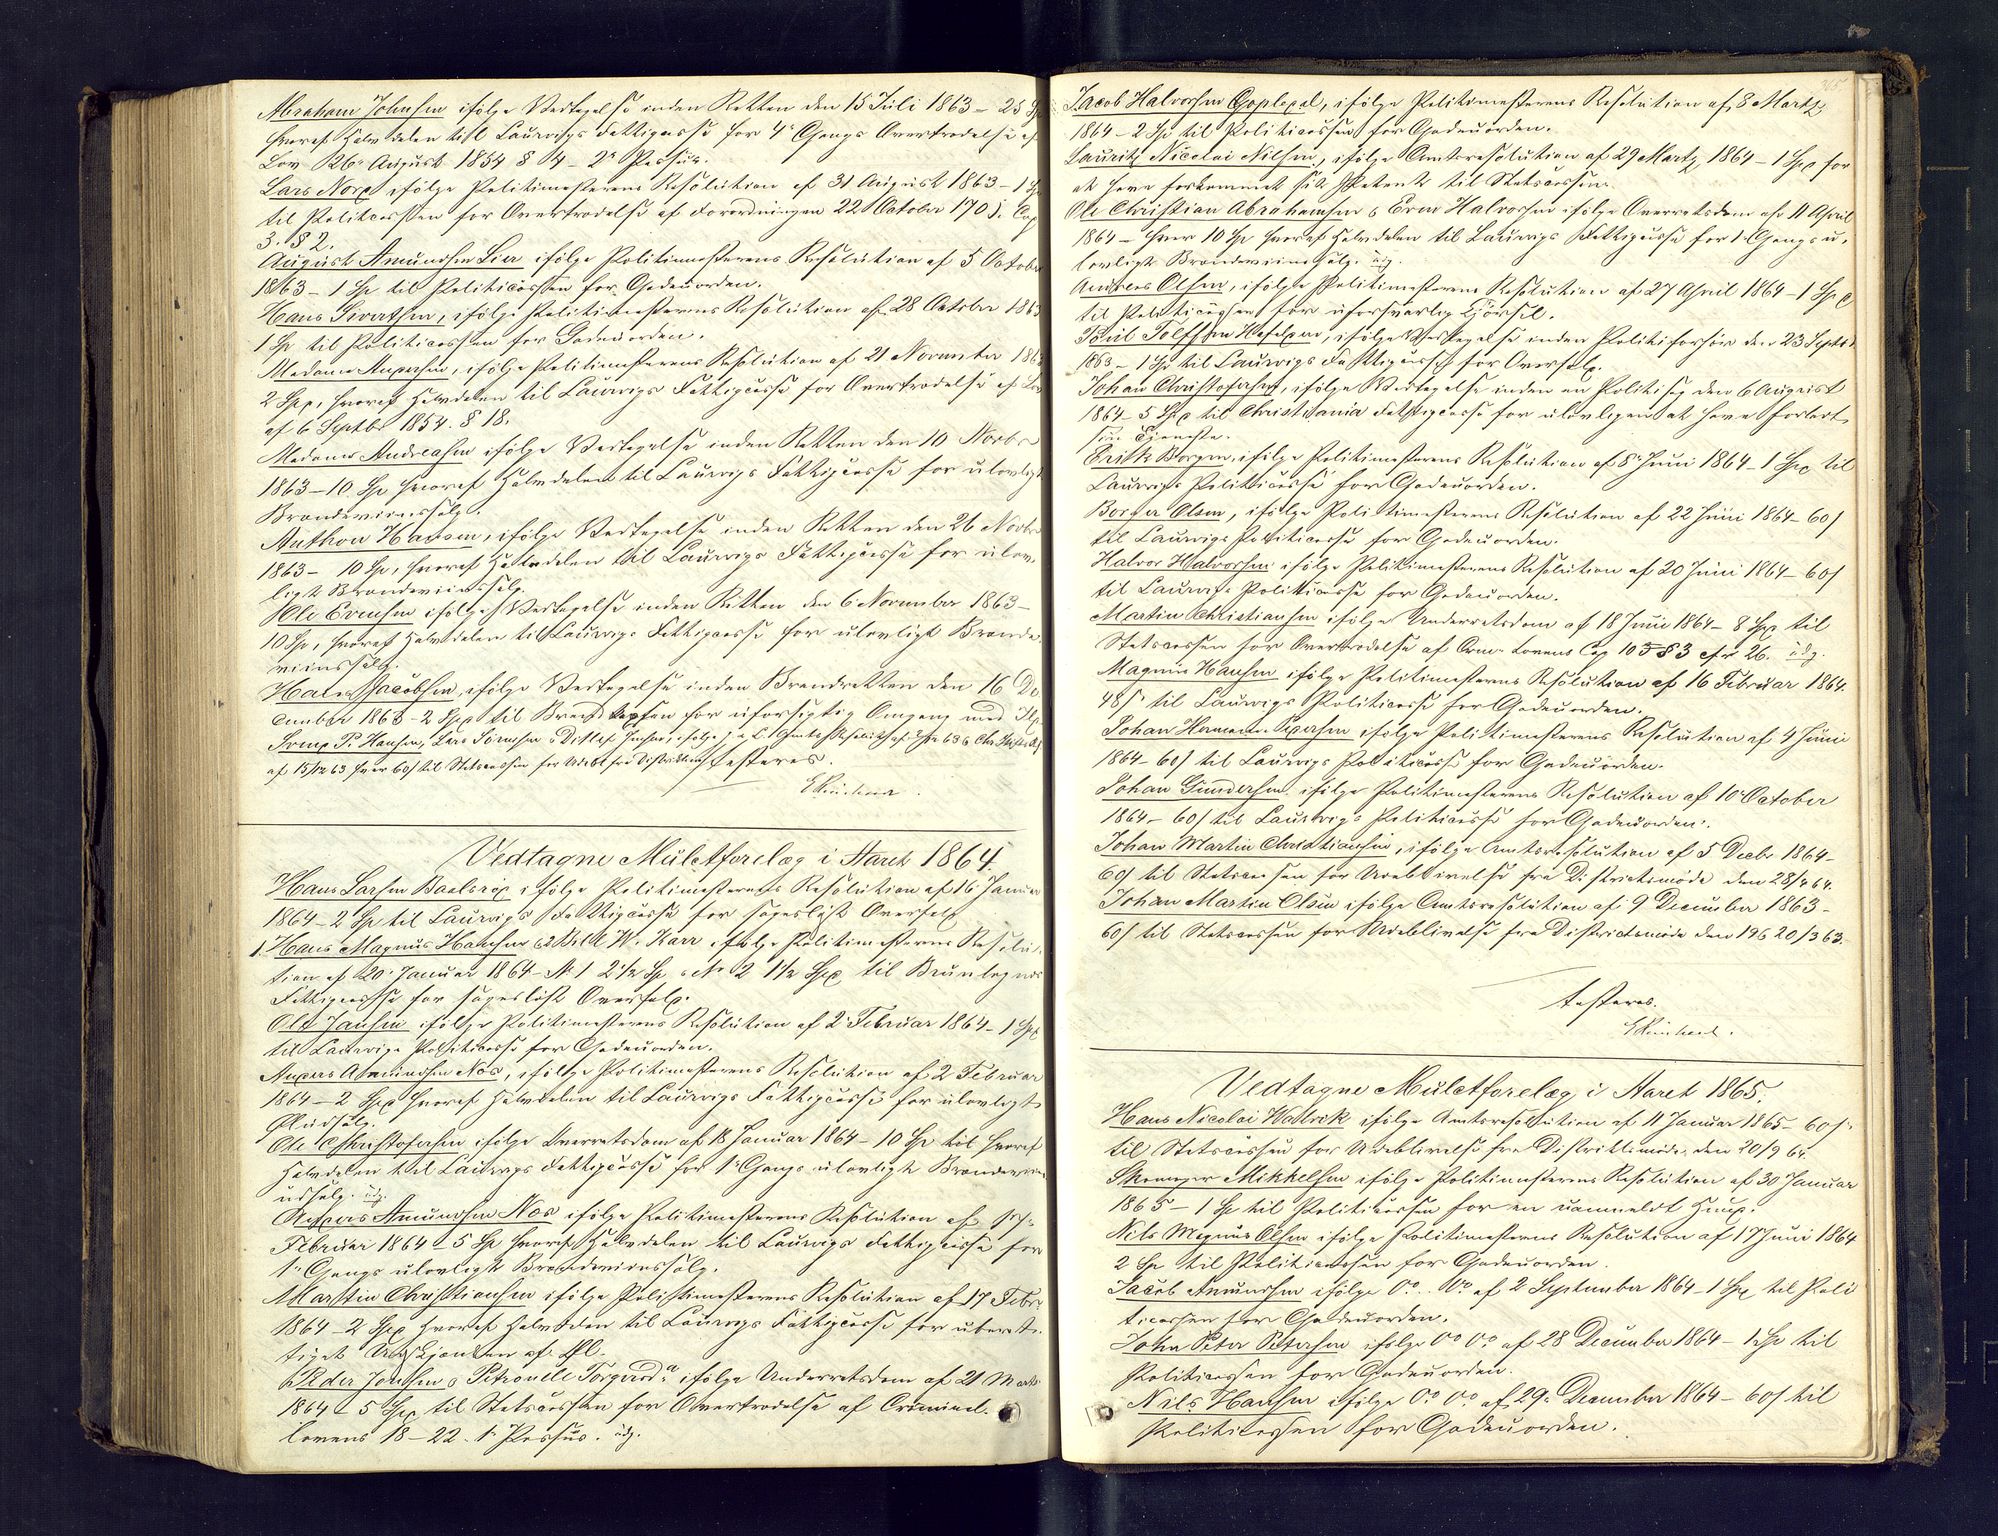 Abraham Johnsen ifølge Vedtagelse inden Retten den 15 Juli 1863 – 25 Sp
hvoraf Halvdelen till Laurvigs Fattigcasse for 4e Gangs Overtrædelse af
Lov 26 August 1854 § 4 – 2n Passus.
Lars Nord ifølge Politimesterens Resolution af 31 August 1863 – 1 Sp
til Politcassen for Overtrædelse af Forordningen 22 October 1701. Cap
3. § 2.
August Amundsen Lier ifølge Politimesterens Resolution af 5 October
1863 – 1 Sp til Politicassen for Gadeuorden.
Hans Sivertsen, ifølge Politimesterens Resolution af 28 October 1863
1 Sp til Politicassen for Gadeuorden.
Madame Andersen, ifølge Politimesterens Resolution af 21 November 1863
2 Spd, hvoraf Halvdelen til Laurvigs Fattigcasse for Overtrædelse af Lov
af 6 Septbr 1854. § 18.
Madame Andreasen ifølge Vedtagelse inden Retten den 10 Novbr
1863 – 10 Sp hvoraf Halvdelen til Laurvigs Fattigcasse for ulovligt
Brændeviinssalg.
Anthon Hansen, ifølge Vedtagelse inden Retten den 26 Novbr
1863 – 10 Sp, hvoraf Halvdelen til Laurvigs Fattigcasse for ulov-
ligt Brændeviinssalg.
Ole Evensen ifølge Vedtagelse inden Retten den 6 November 1863 –
10 Sp, hvoraf Halvdelen til Laurvigs Fattigcasse for ulovligt Brænde-
viinssalg.
Hans Jacobsen, ifølge Vedtagelse inden Brandretten den 16 De
cember 1863 – 2 Spd til Brandkassen for uforsigtig Omgang med Ild
P. Hansen, Lars Sørensen & Ditlef Jensen, ifølge
af 15/12 63 hver 60 s til Statscassen for Udebl. fra Distriktsm. testeres.
Vedtagne Mulctforelæg i Aaret 1864.
Hans Larsen Baalsrød ifølge Politimesterens Resolution af 16 Januar
1864 – 2 Sp til Laurvigs Fattigcasse for sagesløst Overfald
1. Hans Magnus Hansen & 2 W. Karr ifølge Politimesterens Resolu-
tion af 20 Januar 1864 – No 1 2 1/2 Sp & No 2 1 1/2 Spd til Brunlagnes
Fattigcasse for sagesløst Overfald.
Ole Jansen ifølge Politimesterens Resolution af 2 Februar 1864 – 1 Spd
til Laurvigs Politicasse for Gadeuorden.
Anders Amundsen Nøs, ifølge Politimesterens Resolution af 2 Februar
1864 – 2 Spd hvoraf Halvdelen til Laurvigs Fattigcasse for ulovligt
Øludsalg.
Ole Christofersen ifølge Overretsdom af 18 Januar 1864 – 10 Sp hvoraf
Halvdelen til Laurvigs Fattigcasse for 1e Gangs ulovligt Brændeviins
udsalg. udg.
Anders Amundsen Nøs ifølge Politimesterens Resolution af
Februar 1864 – 5 Sp hvoraf Halvdelen til Laurvigs Fattigcasse for
1e Gangs ulovligt Brændeviinssalg.
Martin Christiansen ifølge Politimesterens Resolution af 17 Febr
1864 – 2 Spd hvoraf Halvdelen til Laurvigs Fattigcasse for uberet-
tiget Udskjænken af Øl.
Peder Jonsen & Petronelle Torgersd. ifølge Underretsdom af 21 Marts
1864 – 5 Spd til Statscassen for Overtrædelse af Criminal-
lovens 18 – 22. 1e Passus. udg.
Jacob Halvorsen Goplepal, ifølge Politimesterens Resolution af 8 Martz
1864 – 2 Sp til Politicassen for Gadeuorden.
Lauritz Nicolai Nilsen, ifølge Amtsresolution af 29 Martz 1864 – 1 Spd for
at have forkommet sit Patent til Statscassen.
Ole Christian Abrahamsen & Even Halvorsen ifølge Overretsdom af 11 April
1864 – hver 10 Sp hvoraf Halvdelen til Laurvigs Fattigcasse for 1e Gangs u-
lovligt Brændeviinssalg. udg.
Andreas Olsen, ifølge Politimesterens Resolution af 27 April 1864 – 1 Spd
til Politicassen for uforsvarlig Kjørsel.
Poul Tolfsen ifølge Vedtagelse inden Politiforhør den 23 Septbr
1863 – 1 Sp til Laurvigs Fattigcasse for Overfald.
Johan Christofersen, ifølge Vedtagelse inden en Politisag den 6 August
1864 – 5 Spd til Christiania Fattigcasse for ulovligen at have forladt
sin Tjeneste.
Erik Borgen, ifølge Politimesterens Resolution af 8 Juni 1864 – 1 Spd til
Laurvigs Politicasse for Gadeuorden.
Borger Olsen, ifølge Politimesterens Resolution af 22 Juni 1864 – 60 s
til Laurvigs Politicasse for Gadeuorden.
Halvor Halvorsen ifølge Politimesterens Resolution af 20 Juni 1864 – 60 s
til Laurvigs Politicasse for Gadeuorden.
Martin Christiansen ifølge Underretsdom af 18 Juni 1864 – 8 Spd til
Statscassen for Overtrædelse af Crim. Lovens Cap 10 § 3 cfr 26. udg.
Magnus Hansen ifølge Politimesterens Resolution af 16 Februar 1864.
48 s til Laurvigs Politicasse for Gadeuorden.
Johan Herman Pedersen ifølge Politimesterens Resolution af 4 Juni
1864 – 60 s til Laurvigs Politicasse for Gadeuorden.
Johan Gundersen ifølge Politimesterens Resolution af 10 October
1864 – 60 s til Laurvigs Politicasse for Gadeuorden.
Johan Martin Christiansen, ifølge Amtsresolution af 5 Decbr 1864 –
60 s til Statscassen for Udeblivelse fra Districtsmøde den 28/4 64.
Johan Martin Olsen ifølge Amtsresolution af 9 December 1863 –
60 s til Statscassen for Udeblivelse fra Districtsmøde den 19 & 20/3 63.
testeres.
Vedtagne Mulctforelæg i Aaret 1865.
Hans Nicolai Wattvik ifølge Amtsresolution af 11 Januar 1865 – 60 s
til Statscassen for Udeblivelse fra Distriktsmøde, den 20/9 64.
Mikkelsen ifølge Politimesterens Resolution af 30 Januar
1865 – 1 Sp til Politicassen for en uanmeldt Hund.
Nils Magnus Olsen ifølge Politimesterens Resolution af 17 Juni 1864
2 Sp til Politicassen for Gadeuorden.
Jacob Amundsen ifølge Do Do af 2 September 1864 – 1 Spd til Poli
ticassen for Gadeuorden.
John Peter Petersen ifølge Do Do af 28 December 1864 – 1 Sp til
Politicassen for Gadeuorden.
Nils Hansen ifølge Do Do af 29 December 1864 – 60 s til
Politicassen for Gadeuorden.